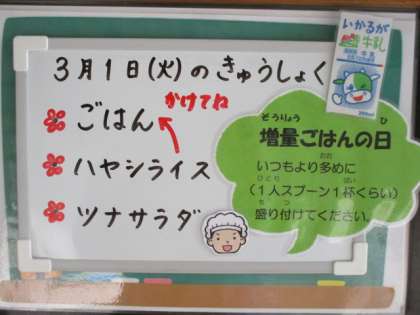 3月1日(火)のきゅうしょく
ごはん
かけてね
ハヤシライス
ツナサラダ
いかるが
牛乳
ぞうりょう ひ
増量ごはんの日
おお
いつもより多めに
ひとり ぱい
(1人スプーン1杯くらい)
も つ
盛り付けてください。